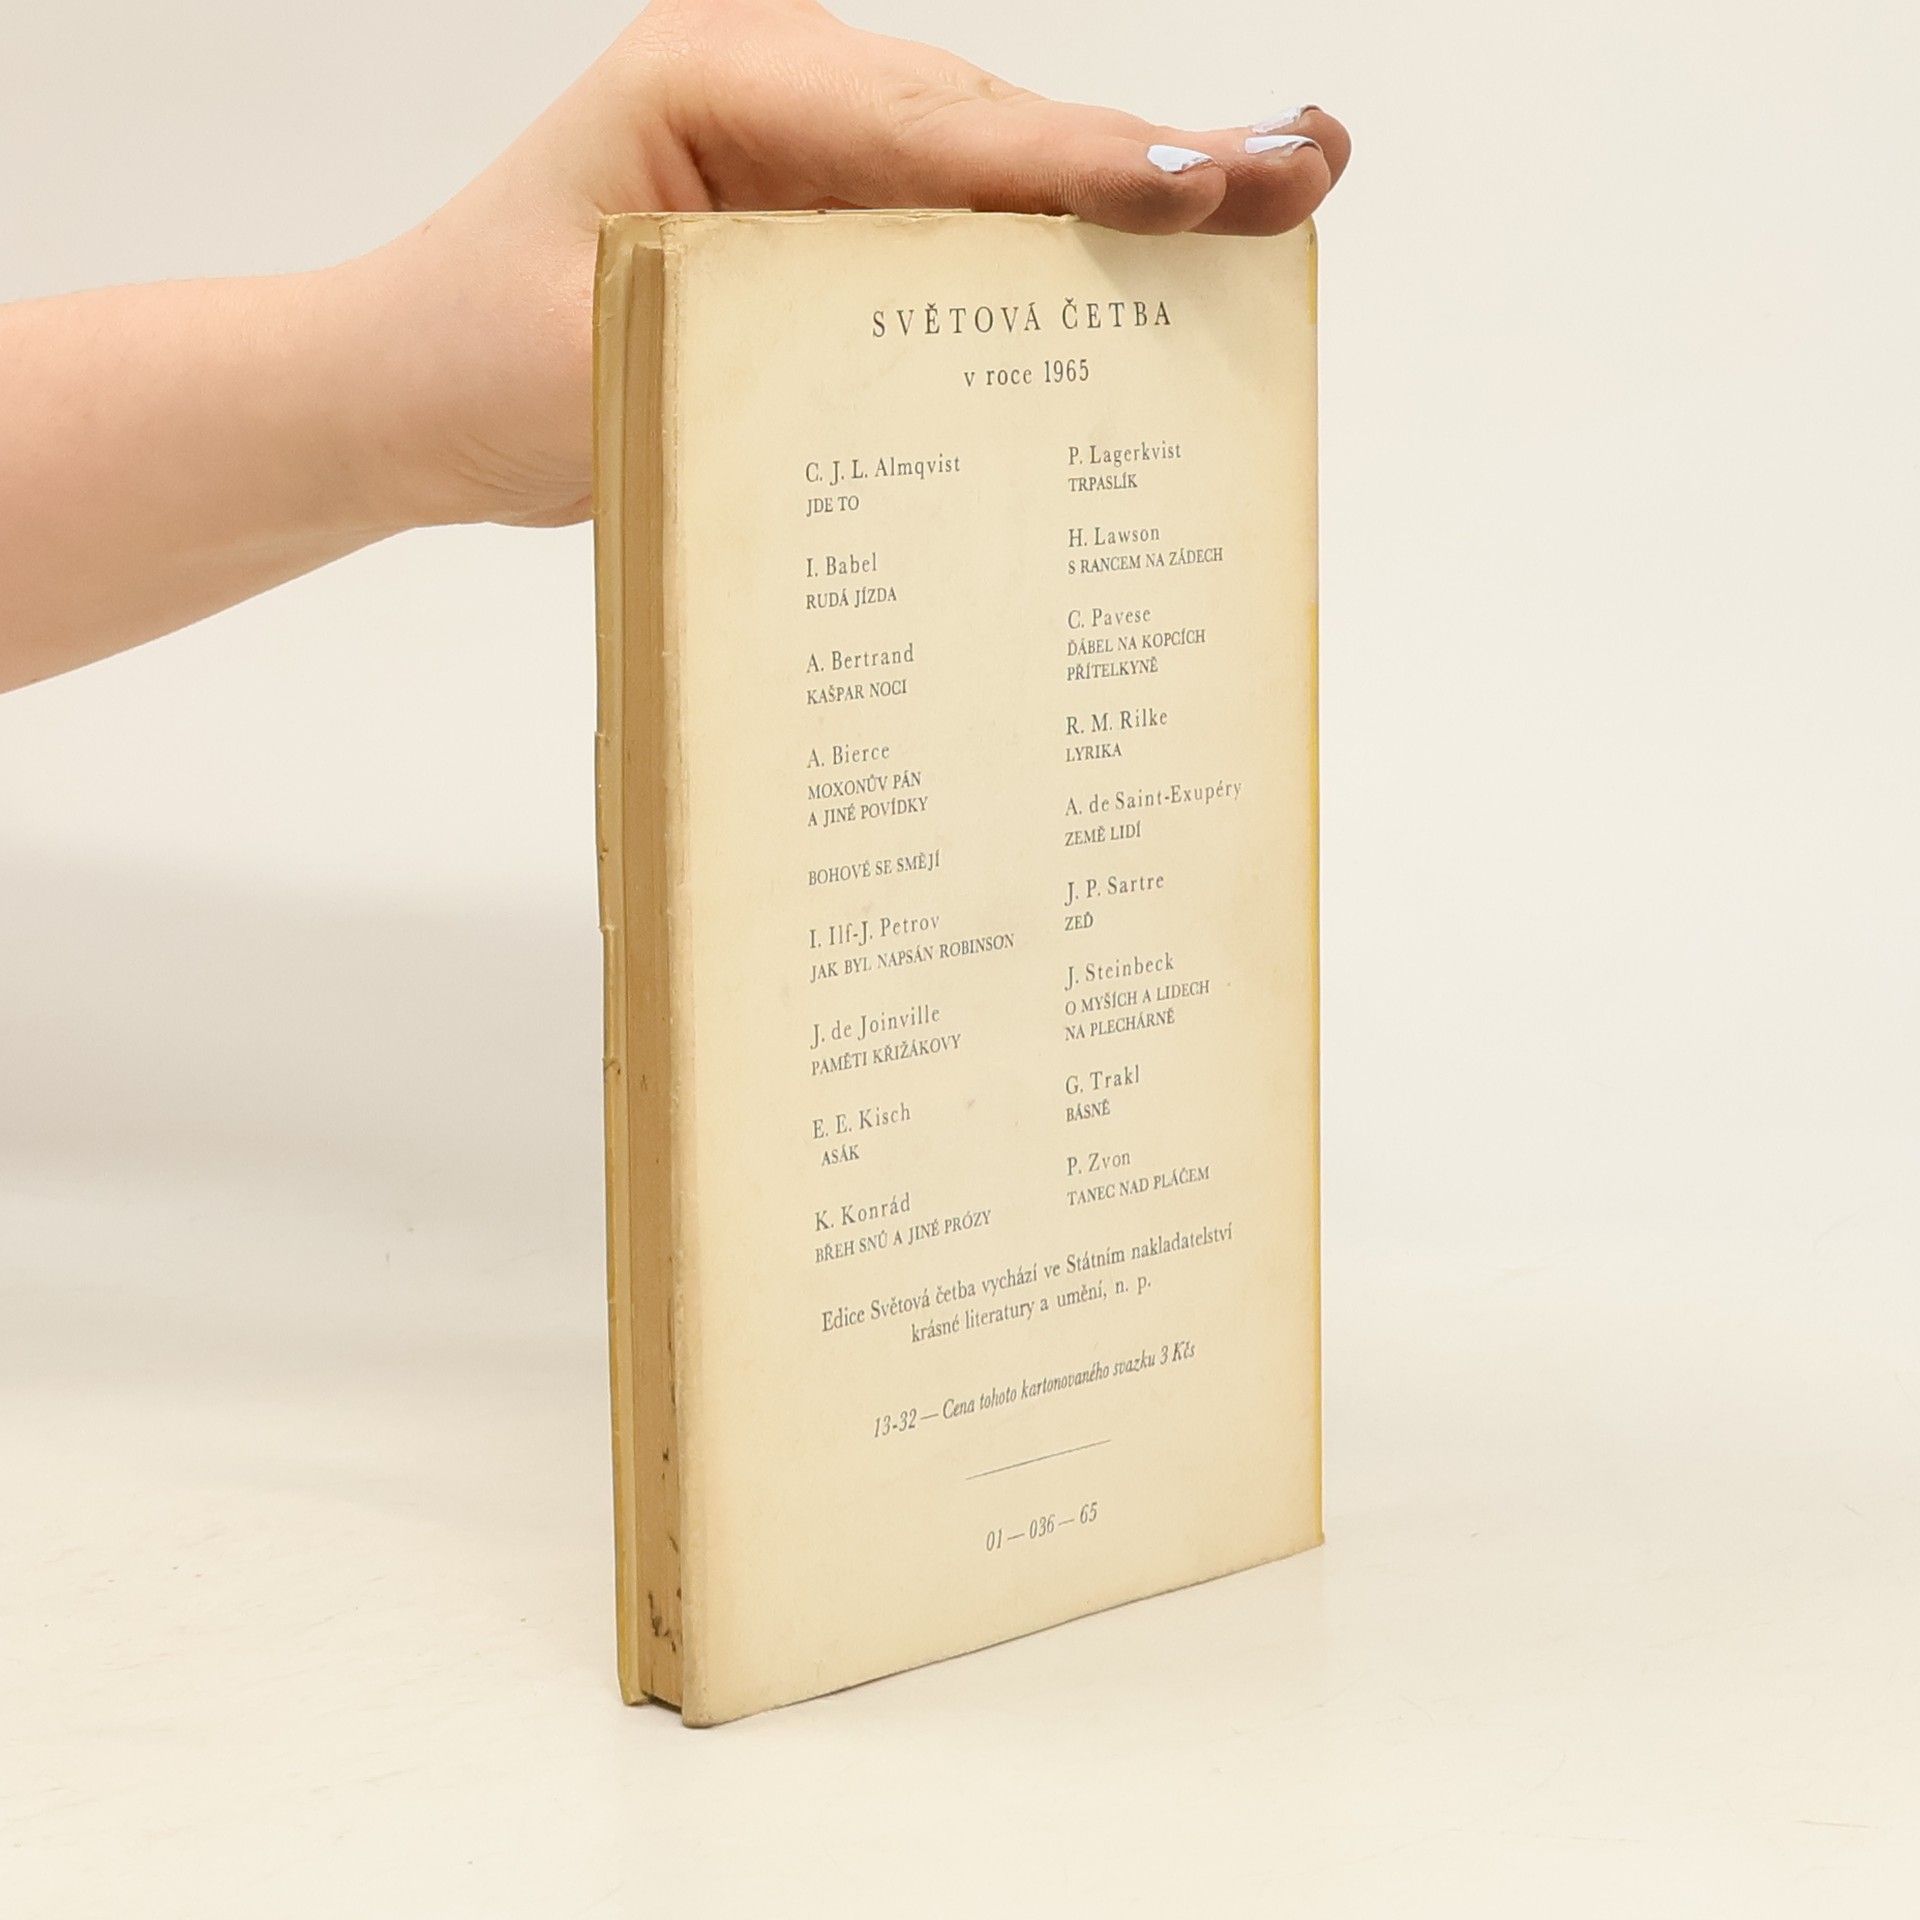 SVĚTOVÁ ČETBA
v roce 1965
C. J. L. Almqvist
JDE TO
I. Babel
RUDÁ JÍZDA
A. Bertrand
KAŠPAR NOCI
A. Bierce
MOXONŮV PÁN
A JINÉ POVÍDKY
BOHOVÉ SE SMĚJÍ
I. Ilf-J. Petrov
JAK BYL NAPSÁN ROBINSON
J. de Joinville
PAMĚTI KŘIŽÁKOVY
E. E. Kisch
ASÁK
K. Konrád
BŘEH SNŮ A JINÉ PRÓZY
P. Lagerkvist
TRPASLÍK
H. Lawson
S RANCEM NA ZÁDECH
C. Pavese
ĎÁBEL NA KOPCÍCH
PŘÍTELKYNĚ
R. M. Rilke
LYRIKA
A. de Saint-Exupéry
ZEMĚ LIDÍ
J. P. Sartre
ZEĎ
J. Steinbeck
O MYŠÍCH A LIDECH
NA PLECHÁRNĚ
G. Trakl
BÁSNĚ
P. Zvon
TANEC NAD PLÁČEM
Edice Světová četba vychází ve Státním nakladatelství
krásné literatury a umění, n. p.
13-32 — Cena tohoto kartonovaného svazku 3 Kčs
01 — 036 — 65